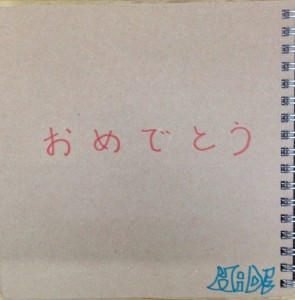 おめでとう
HIDE